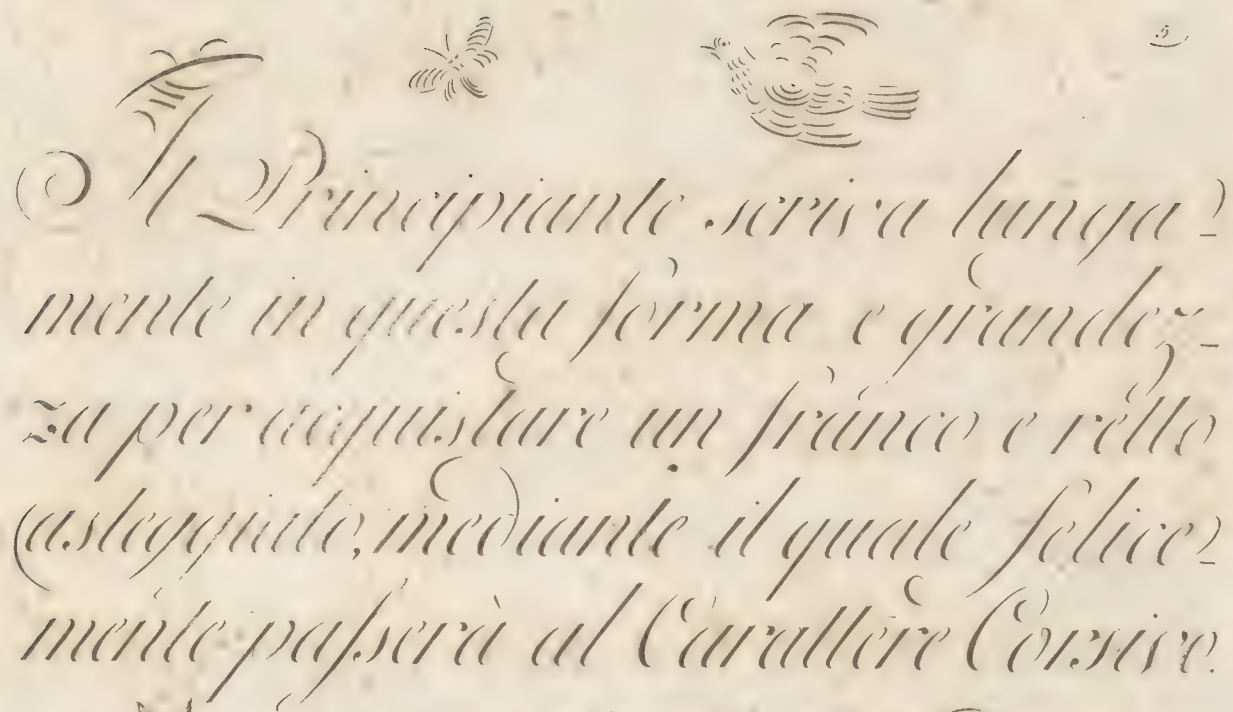 5
Il Principiante scriva lunga-
mente in questa forma e grandez-
za per acquistare un franco e retto
Casteggiato, mediante il quale felice-
mente paſserà al Carattere Corsivo.